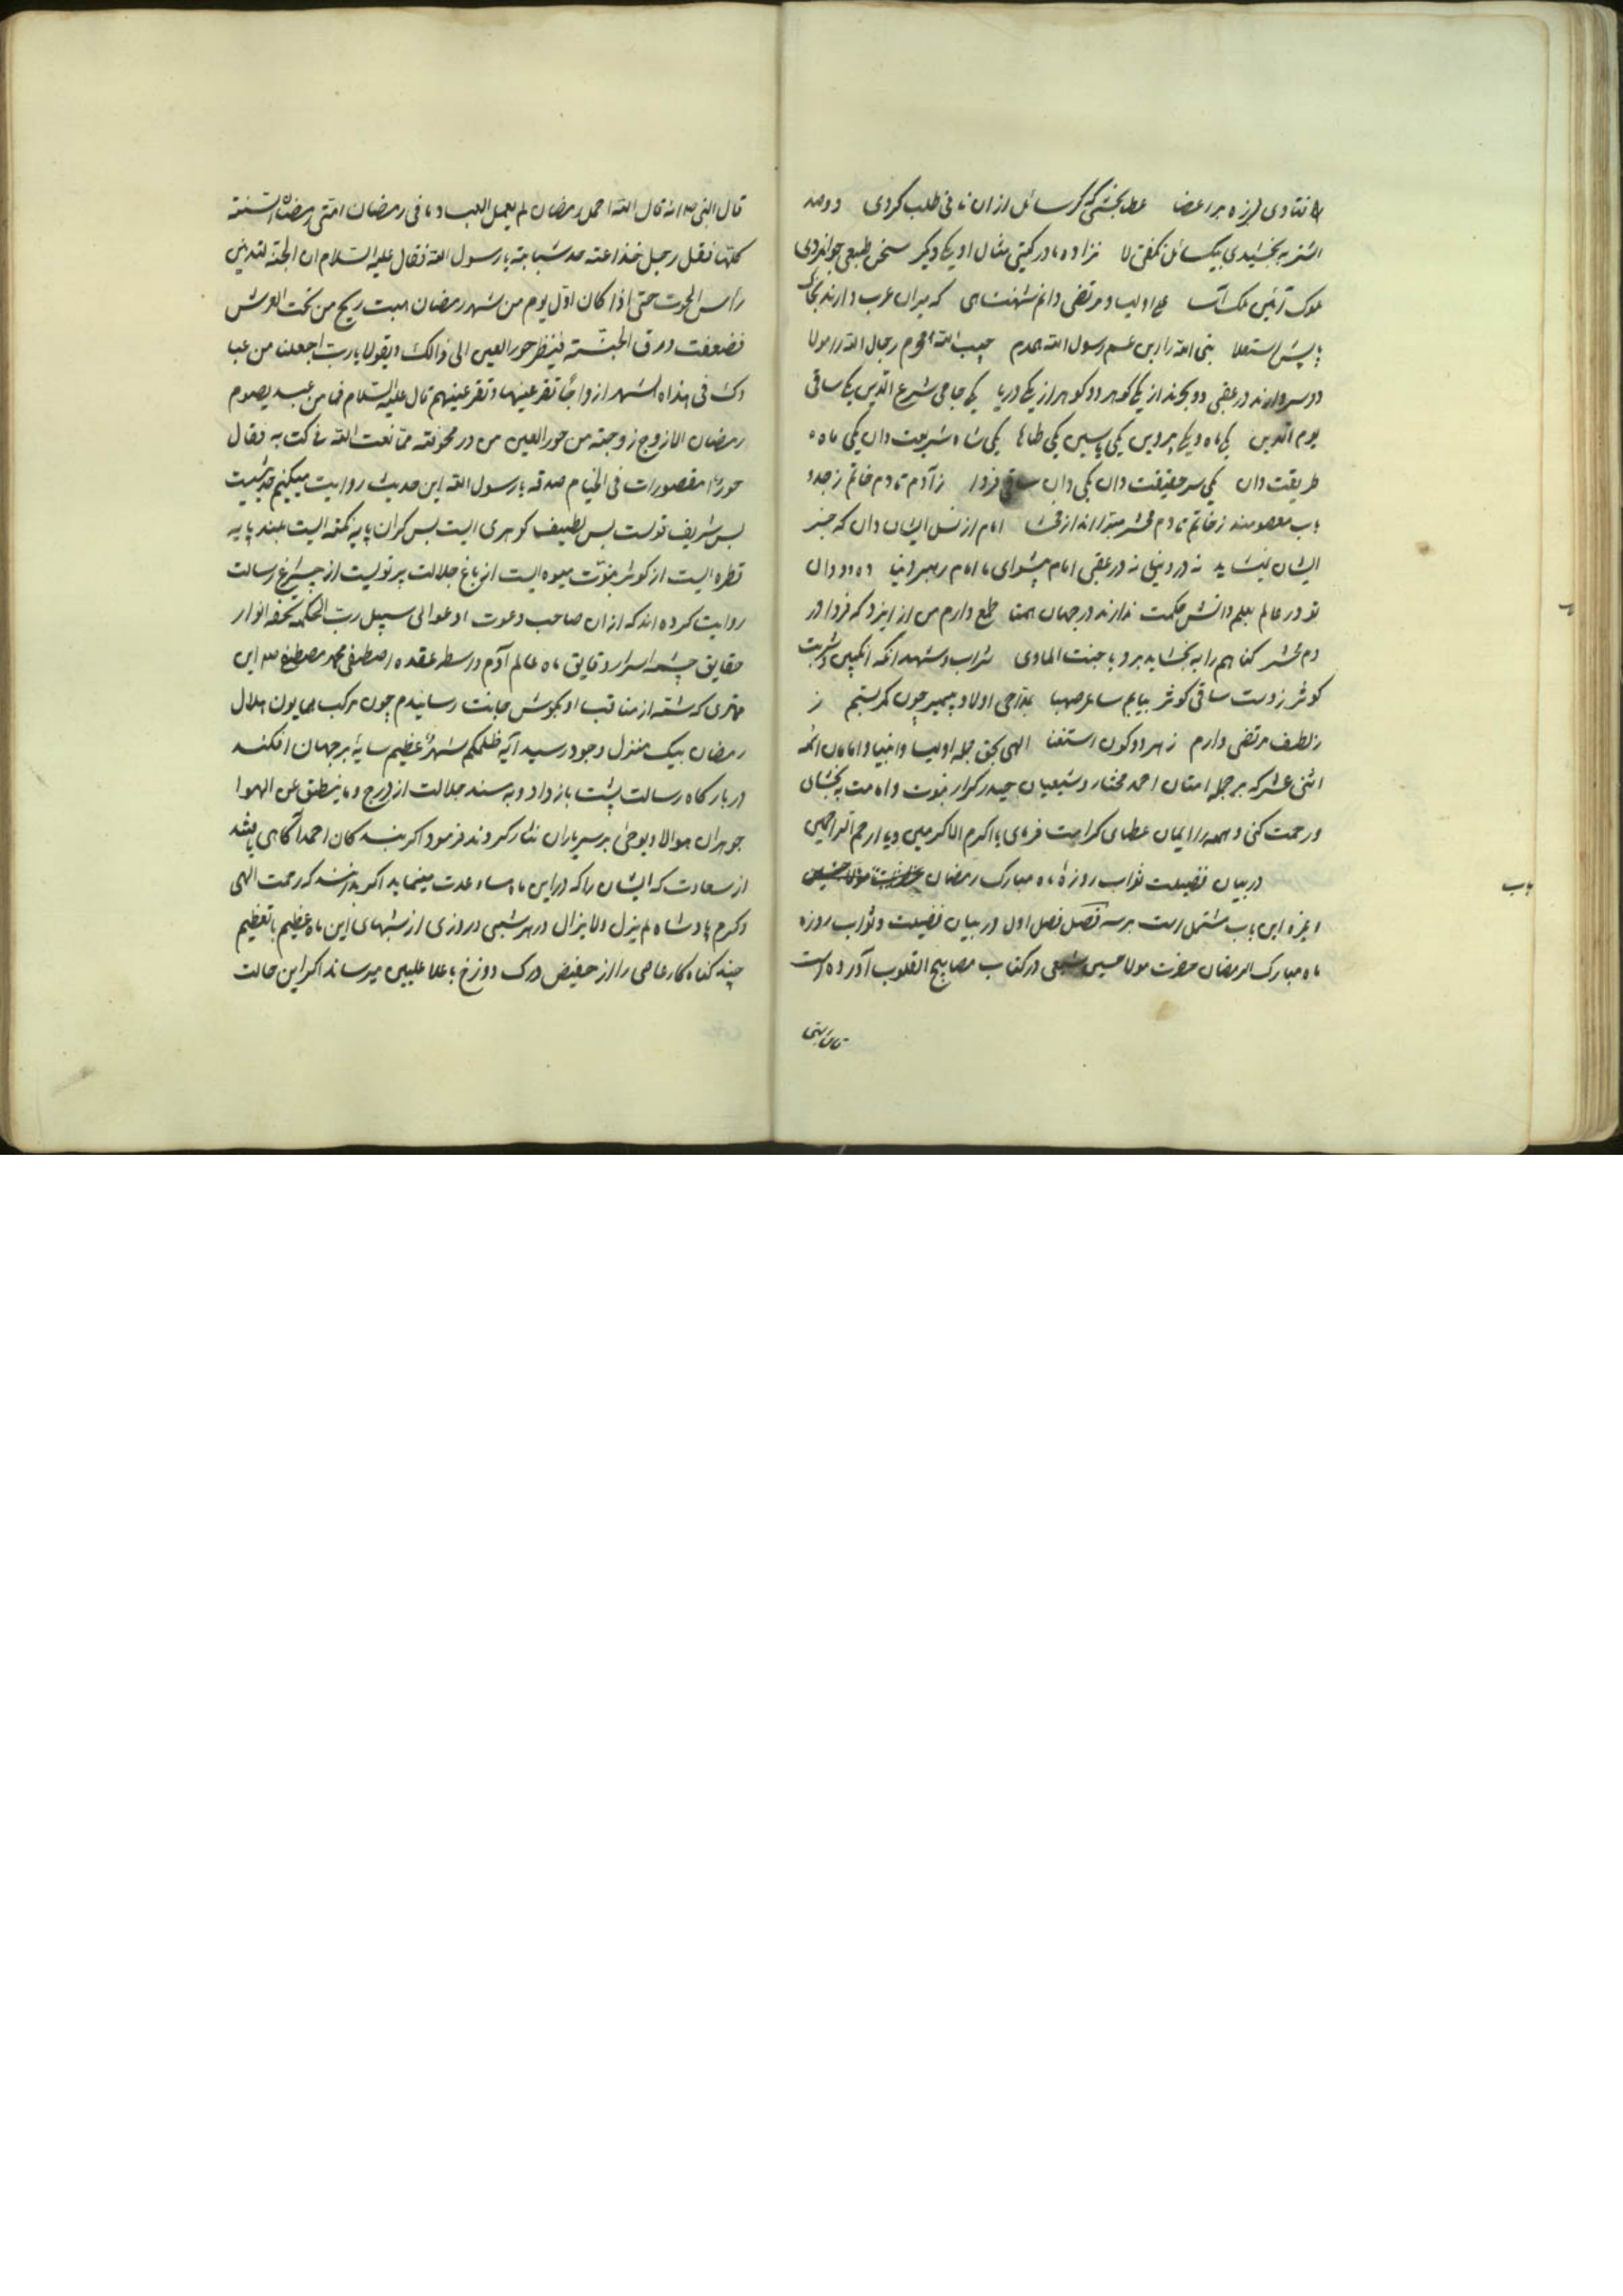 فتادی لرزه بر اعضا عطا بخشی که گر سائل از آن نانی طلب کردی دو صد
اشتر به بخشیدی بیک سائل نگفتی لا نزاده مادر گیتی مثال او یکی دیگر سخن طبعی جوانمردی
ملوک آئین ملک آسا علی اولیا و مرتضی دانم شهنشاهی که میران عرب دارند
نبی الله را ابن عم رسول الله همدم حبیب الله محرم رجال الله را مولا
دو سردارند در عقبی دو بحرند از یکی گوهر دو گوهر از یکی دریا یکی حامی شرع الدین یکی ساقی
یوم الدین یکی ماه و یکی پروین یکی یاسین یکی طاها یکی شاه شریعت دان یکی ماه
طریقت دان یکی سر حقیقت دان یکی دان ساقی فردا ز آدم تا دم خاتم ز جد و
باب معصومند ز خاتم تا دم محشر مبرا اند از فحشا امام از نسل ایشان دان که جز
ایشان نشاید نه در دنیی نه در عقبی امام پیشوای ما امام رهبر دنیا ده دو دان
تو در عالم بعلم و دانش حکمت ندارند در جهان همتا طمع دارم من از ایزد که فردا در
دم محشر گناهم را به بخشاید برد با جنت الماوی شراب و شهد انگه انگبین و شربت
کوثر ز دست ساقی کوثر بیابم ساغر صهبا بمداحی اولاد پیمبر چون کمر بستم ز
ز لطف مرتضی دارم ز هر دو کون استغنا الهی بحق جمله اولیا و انبیا و امامان ائمه
اثنی عشر که بر جمله امتان احمد مختار و شیعیان حیدر کرار نبوت و امامت به بخشای
و رحمت کنی و همه را ایمان عطای کرامت فرمای یا اکرم الاکرمین و یا ارحم الراحمین
باب
در بیان فضیلت ثواب روزهٔ ماه مبارک رمضان
و غره این باب مشتمل است بر سه فصل فصل اول در بیان فضیلت و ثواب روزه
ماه مبارک الرمضان حضرت مولا حسین شیعی در کتاب مصابیح القلوب آورده است
قال النبی
قال النبی صلعم انه قال الله احمل رمضان لم یعمل العباد ما فی رمضان امتی رمضان السنته
کلها فقل رجل خذاعته حد شبابته یا رسول الله فقال علیه السلام ان الجنة لتدینی
رأس الحوت حتی اذا کان اوّل یوم من شهر رمضان هبت ریح من تحت العرش
فضعفت ورق الجنته فینظر حور العین الی ذالک و یقولا یا رب اجعلنا من عبا
دک فی هذاه الشهر ازواجًا تقر عینها و تقر عینهم قال علیه السلام فما من عبد یصوم
رمضان الا زوج زوجته من حور العین من در مجوفته مما نعت الله فی کتابه فقال
حورٌ مقصورات فی الخیام صدقه یا رسول الله این حدیث روایت میکنیم حدیثیست
بس شریف قولست بس لطیف گوهری ایست بس گران پایه نکته ایست بلند پایه
قطره ایست از کوثر نبوّت میوه ایست از باغ جلالت پرتویست از چراغ رسالت
روایت کرده اند که از ان صاحب دعوت ادعوا الی سبیل رب الحکمه تحفه انوار
حقایق چشمه اسرار دقایق ماه عالم آدم واسطه عقده اصطفی محمد مصطفی صلعم این
مهتری که شمه از مناقب او بگوش جانت رسانیدم چون مرکب همایون هلال
رمضان بیک منزل وجود رسید آیه ظلمکم شهرٌ عظیم سایهٔ بر جهان افکند
در بارگاه رسالت پشت باز داد و به سند جلالت از درج و ما ینطق عن الهوا
جوهران هوالا و یوحیٰ بر سر یاران نثار کردند فرمود اگر بندگان احمد آگاهی باشد
از سعادت که ایشان را که در این ماه مساعدت مینماید اگر بدانند که رحمت الهی
و کرم پادشاه لم یزل و لا یزال در هر شبی در روزی از شبهای این ماه عظیم با تعظیم
چند گناه کار عاصی را از حضیض درک دوزخ با علا علیین میرساند اگر این حالت